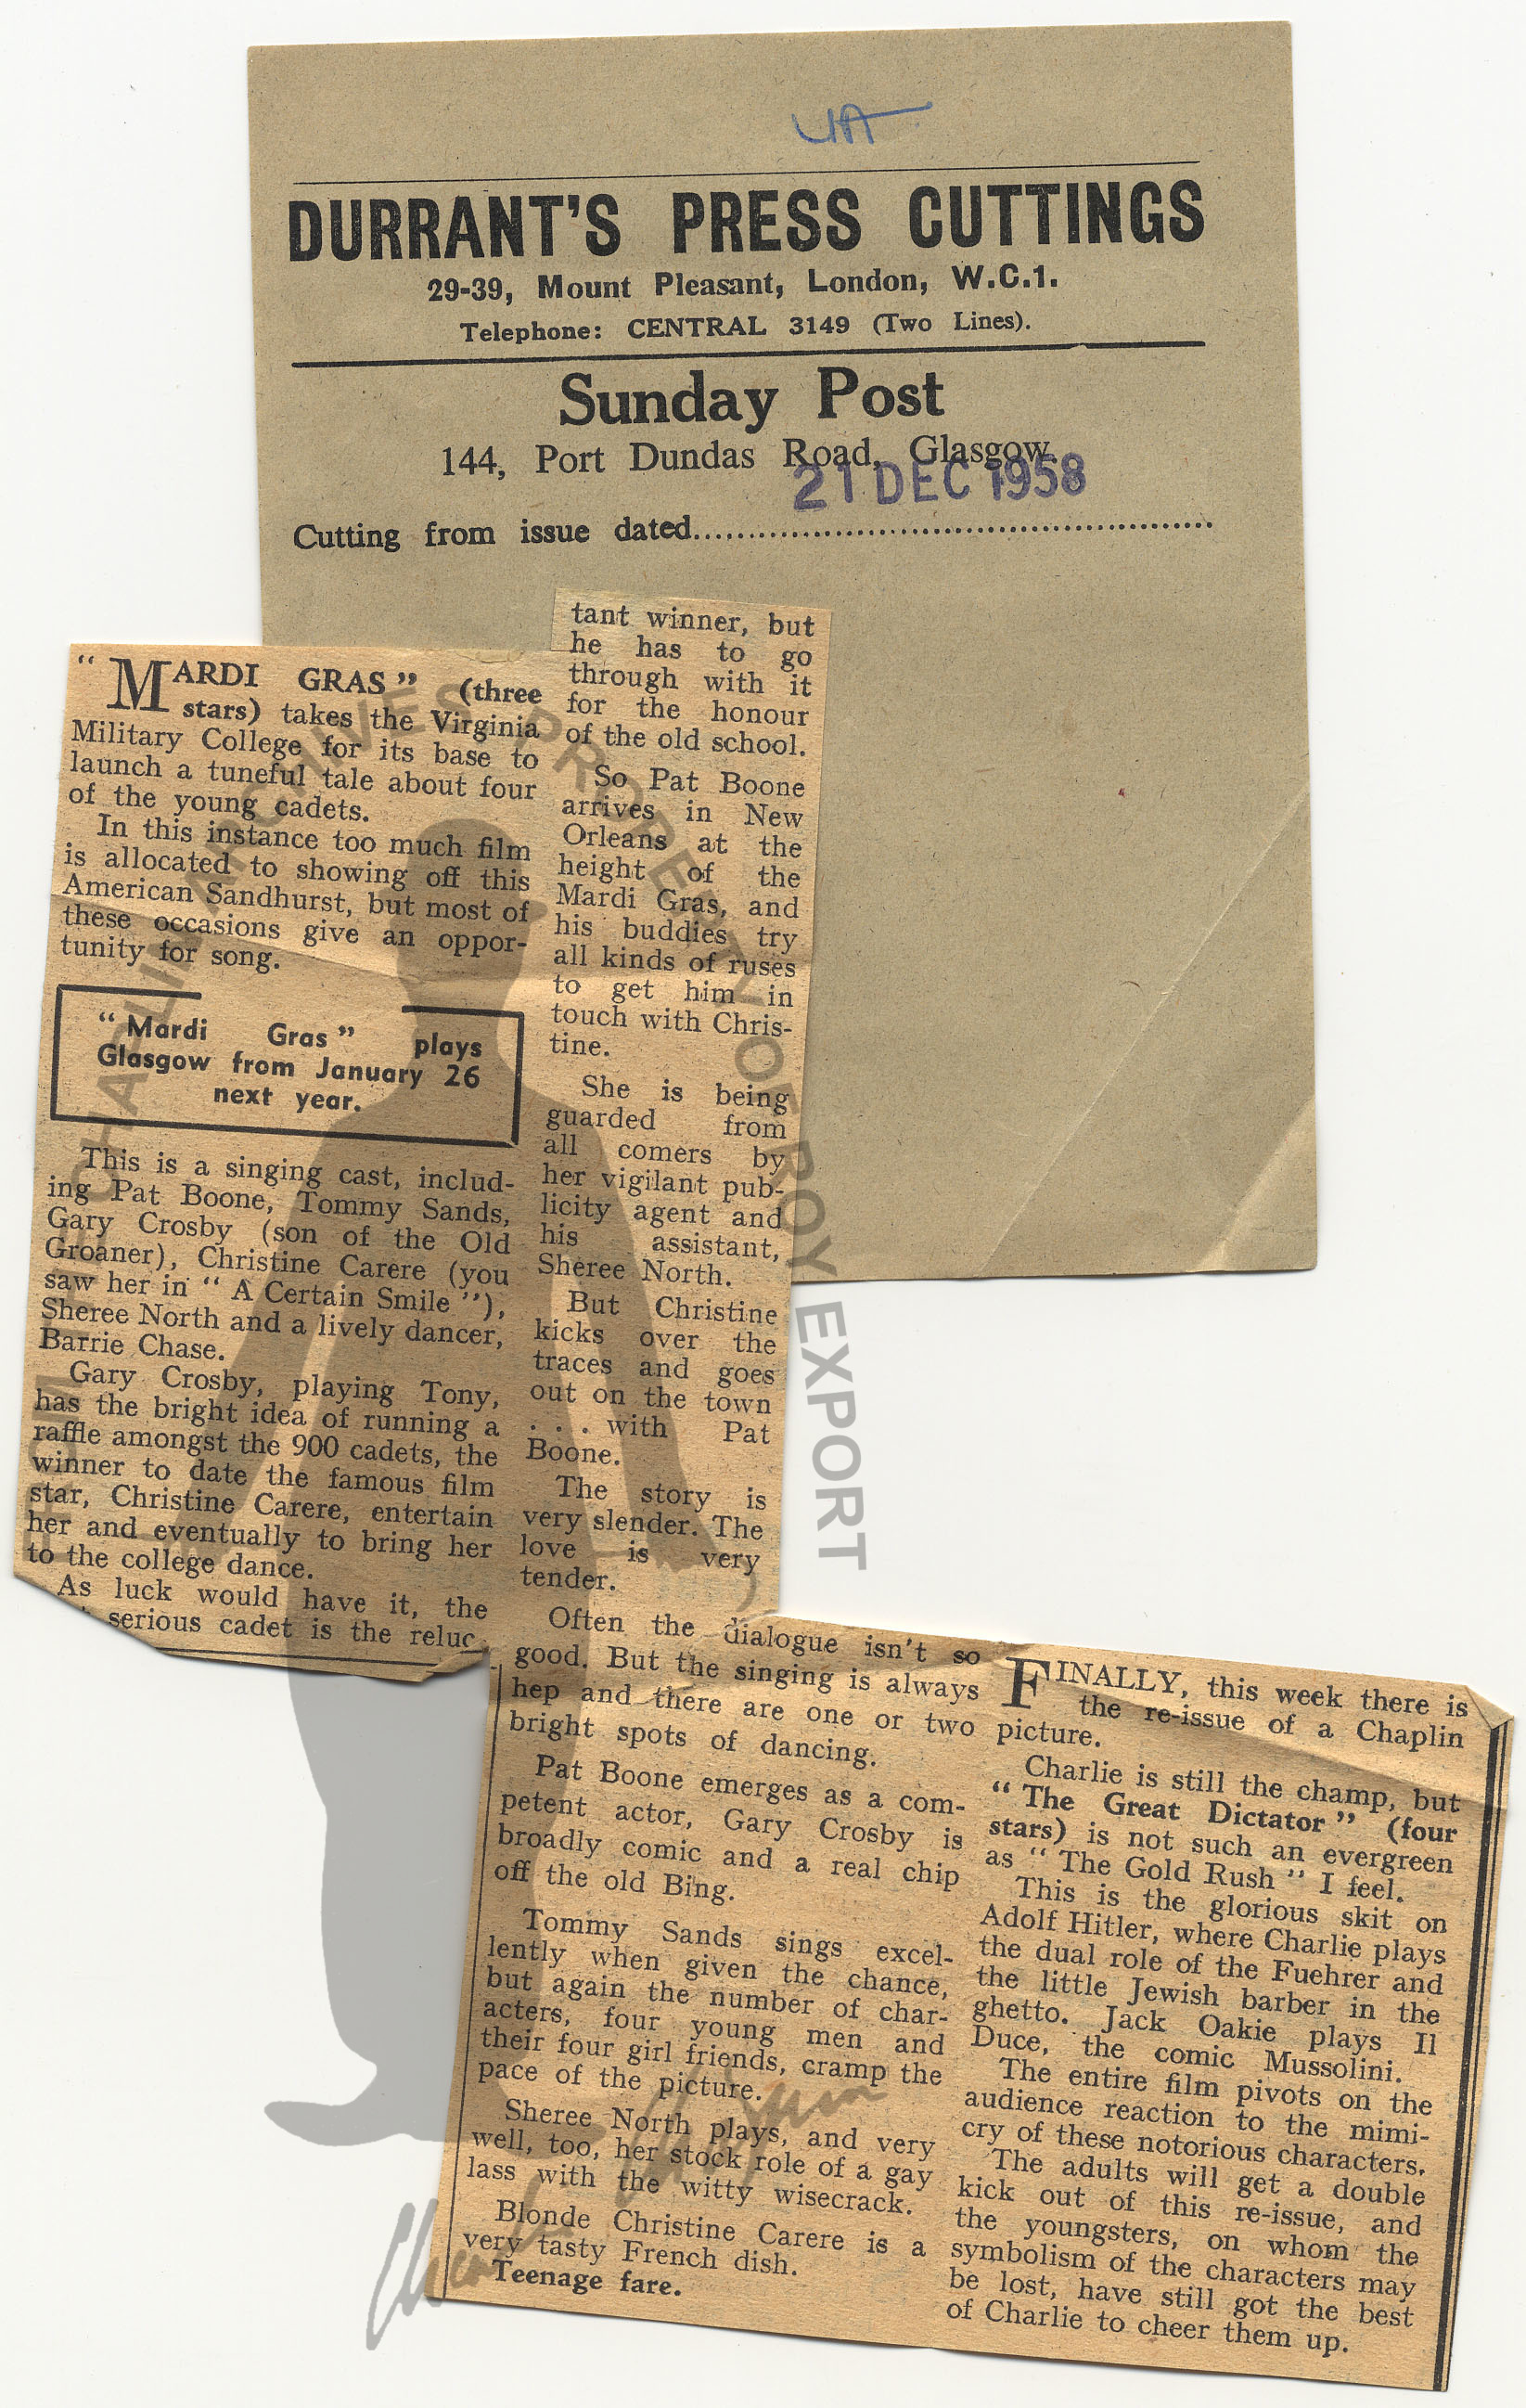 UA
DURRANT'S PRESS CUTTINGS
29-39, Mount Pleasant, London, W.C.1.
Telephone: CENTRAL 3149 (Two Lines).
Sunday Post
144, Port Dundas Road, Glasgow.
21 DEC 1958
Cutting from issue dated
"MARDI GRAS" (three
stars) takes the Virginia
Military College for its base to
launch a tuneful tale about four
of the young cadets.
In this instance too much film
is allocated to showing off this
American Sandhurst, but most of
these occasions give an oppor-
tunity for song.
"Mardi Gras" plays
Glasgow from January 26
next year.
This is a singing cast, includ-
ing Pat Boone, Tommy Sands,
Gary Crosby (son of the Old
Groaner), Christine Carere (you
saw her in "A Certain Smile"),
Sheree North and a lively dancer,
Barrie Chase.
Gary Crosby, playing Tony,
has the bright idea of running a
raffle amongst the 900 cadets, the
winner to date the famous film
star, Christine Carere, entertain
her and eventually to bring her
to the college dance.
As luck would have it, the
serious cadet is the reluc-
tant winner, but
he has to go
through with it
for the honour
of the old school.
So Pat Boone
arrives in New
Orleans at the
height of the
Mardi Gras, and
his buddies try
all kinds of ruses
to get him in
touch with Chris-
tine.
She is being
guarded from
all comers by
her vigilant pub-
licity agent and
his assistant,
Sheree North.
But Christine
kicks over the
traces and goes
out on the town
. . . with Pat
Boone.
The story is
very slender. The
love is very
tender.
Often the dialogue isn't so
good. But the singing is always
hep and there are one or two
bright spots of dancing.
Pat Boone emerges as a com-
petent actor, Gary Crosby is
broadly comic and a real chip
off the old Bing.
Tommy Sands sings excel-
lently when given the chance,
but again the number of char-
acters, four young men and
their four girl friends, cramp the
pace of the picture.
Sheree North plays, and very
well, too, her stock role of a gay
lass with the witty wisecrack.
Blonde Christine Carere is a
very tasty French dish.
Teenage fare.
FINALLY, this week there is
the re-issue of a Chaplin
picture.
Charlie is still the champ, but
"The Great Dictator" (four
stars) is not such an evergreen
as "The Gold Rush" I feel.
This is the glorious skit on
Adolf Hitler, where Charlie plays
the dual role of the Fuehrer and
the little Jewish barber in the
ghetto. Jack Oakie plays Il
Duce, the comic Mussolini.
The entire film pivots on the
audience reaction to the mimi-
cry of these notorious characters.
The adults will get a double
kick out of this re-issue, and
the youngsters, on whom the
symbolism of the characters may
be lost, have still got the best
of Charlie to cheer them up.
CHAPLIN ARCHIVES PROPERTY OF ROY EXPORT